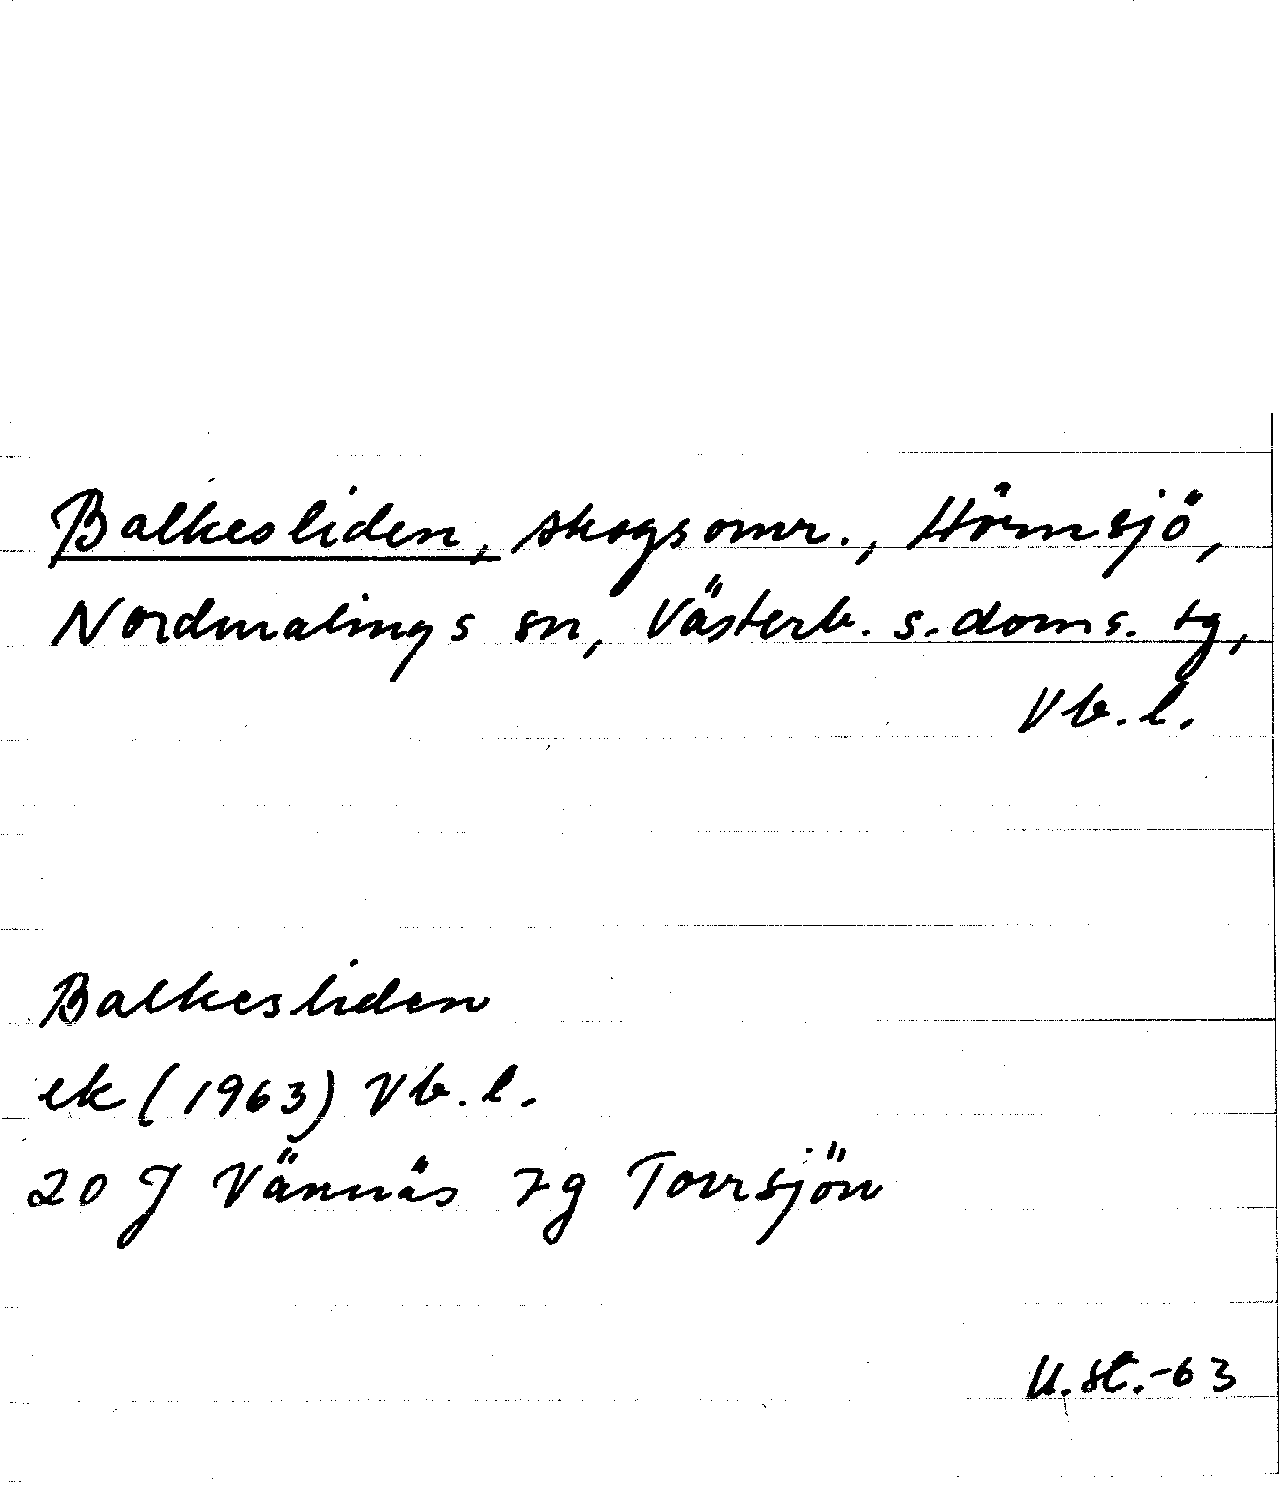 Balkesliden, skogsomr., Hörnsjö,
Nordmalings sn, Västerb. s. doms. tg,
Vb. l.
Balkesliden
ek (1963) Vb. l.
20 J Vännäs 7g Torrsjön
U. St. -63